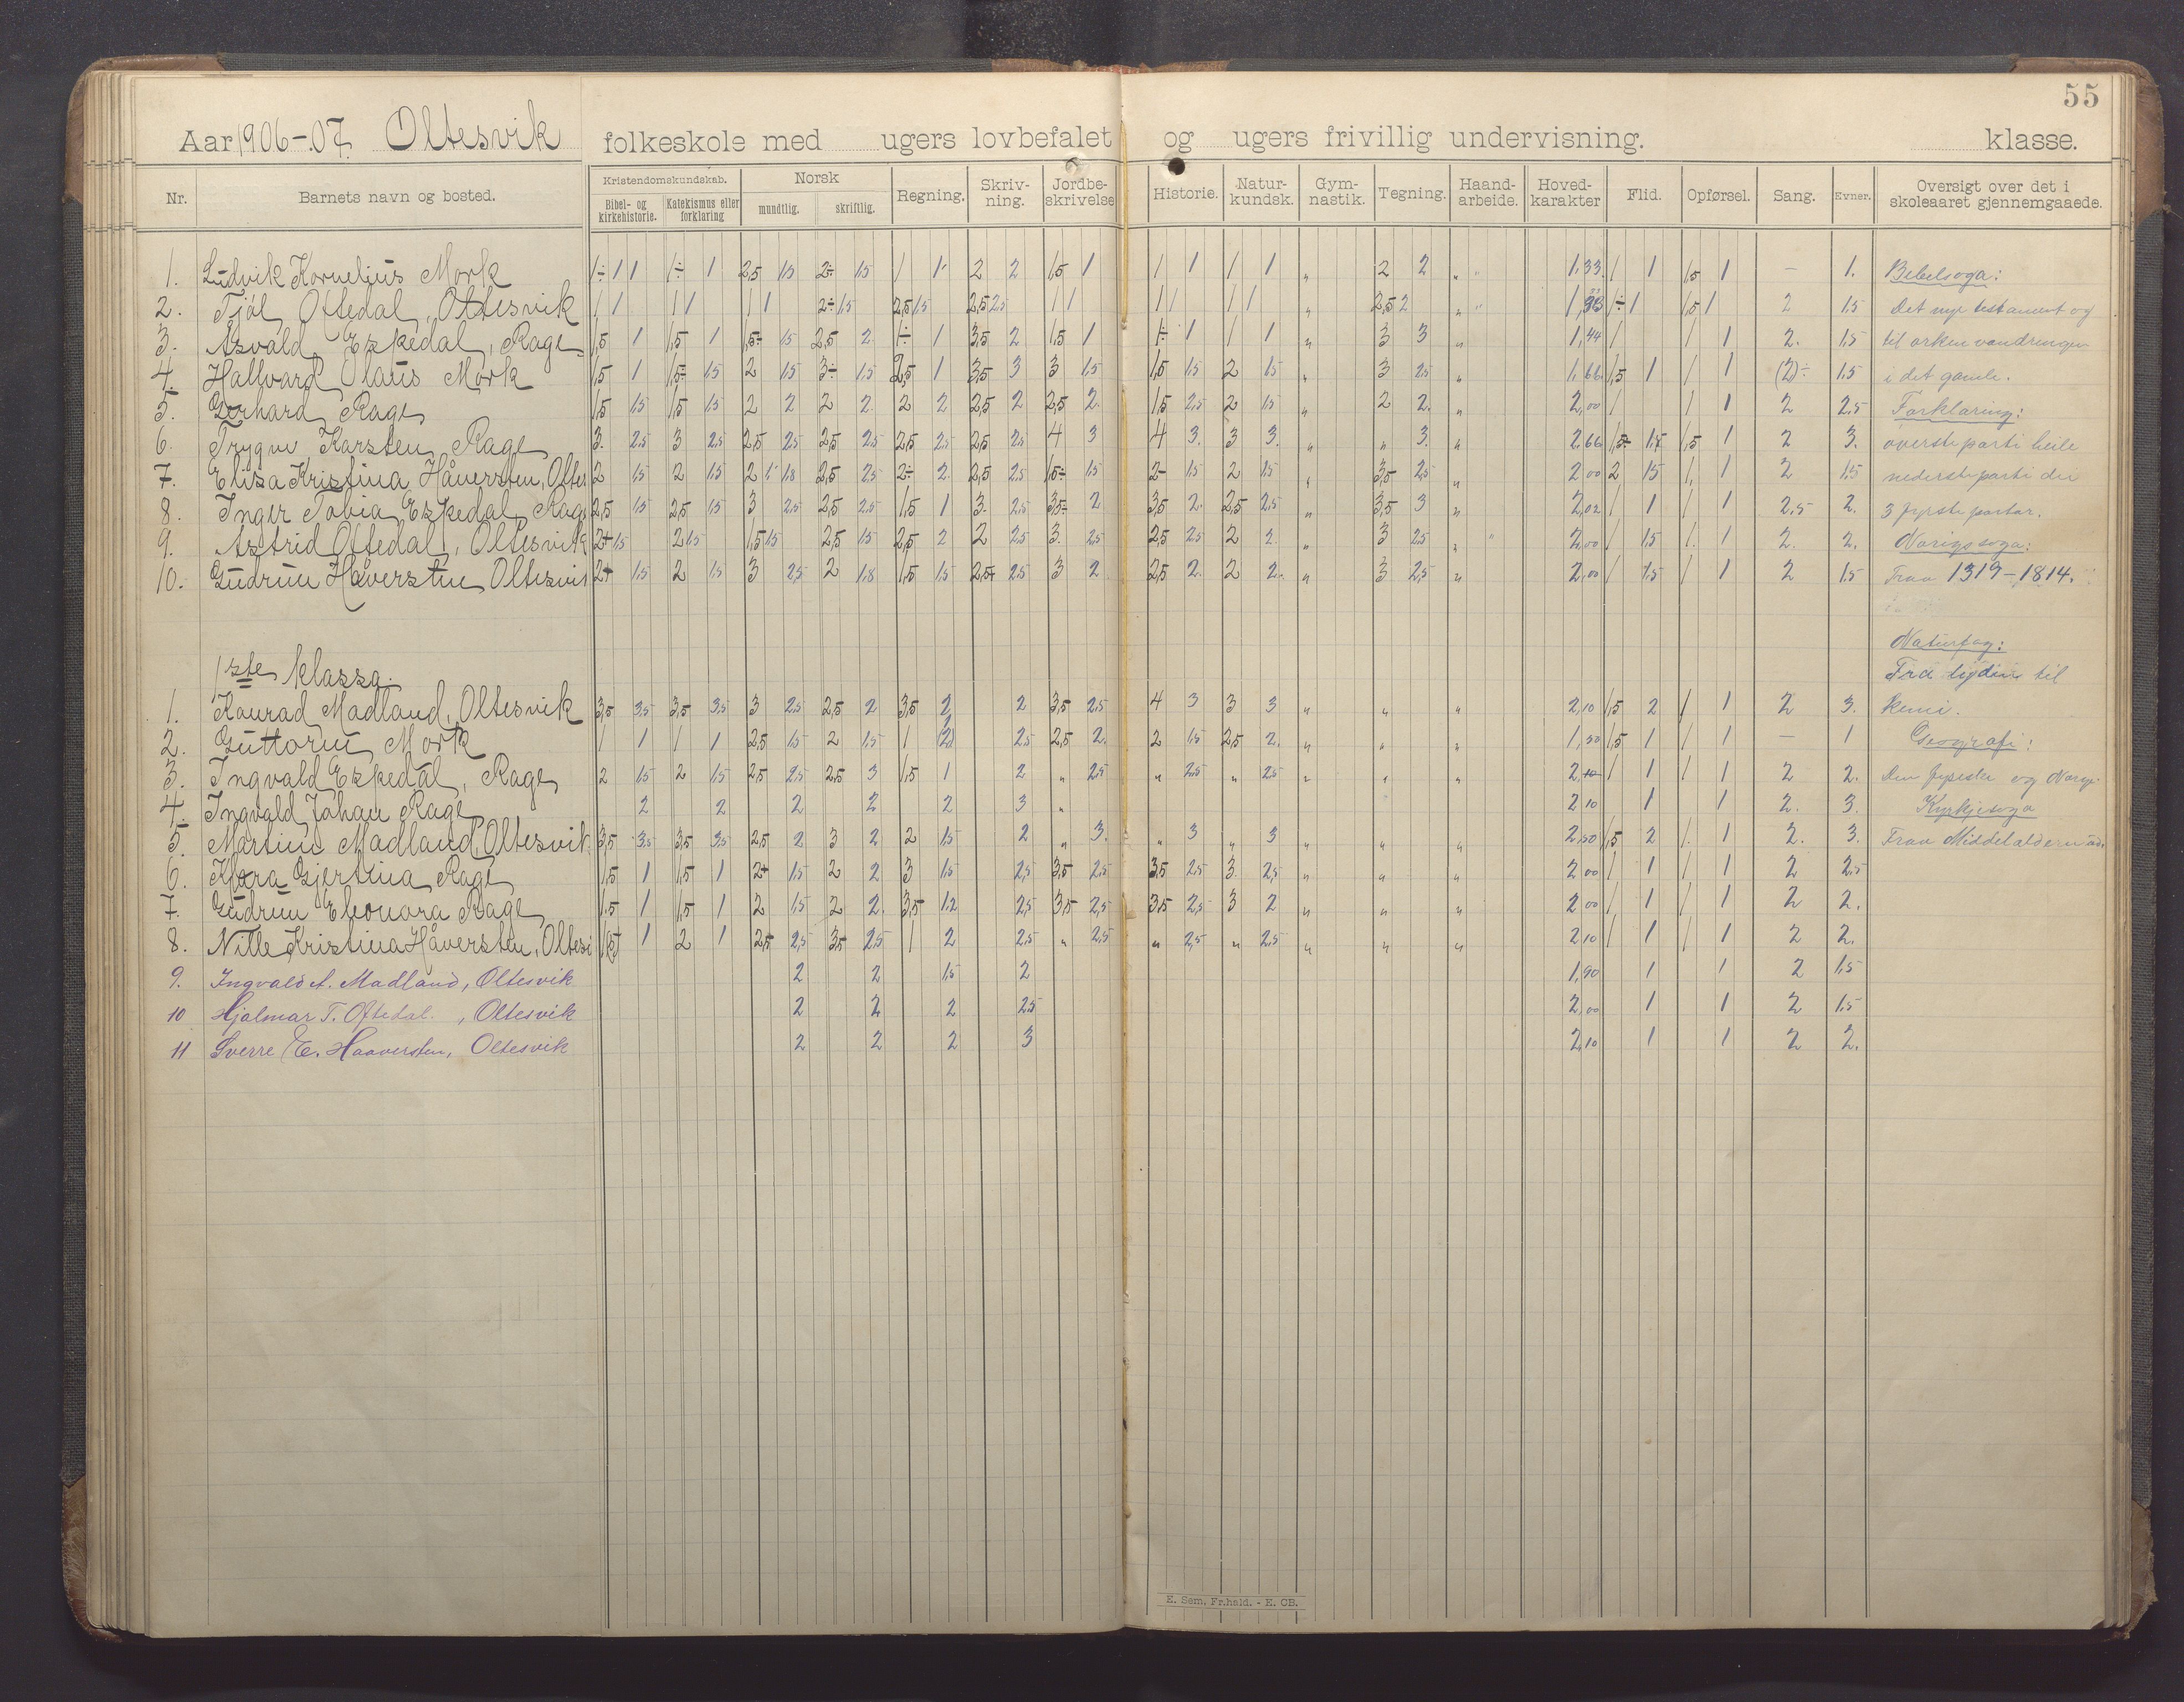 55
Aar 1906-07. Oltesvik folkeskole med ugers lovbefalet og ugers frivillig undervisning. klasse.
Nr. Barnets navn og bosted. Kristendomskundskab. Bibel- og kirkehistorie. Katekismus eller forklaring Norsk mundtlig. skriftlig. Regning. Skriv-ning. Jordbe-skrivelse Historie. Natur-kundsk. Gym-nastik. Tegning. Haand-arbeide. Hoved-karakter Flid. Opførsel. Sang. Evner. Oversigt over det i skoleaaret gjennemgaaede.
1. Ludvik Kornelius Mork 1÷ 1 1 1÷ 1 2,5 1,5 2÷ 1,5 1 1 2 2 1,5 1 1 1 1 1 „ 2 2 „ „ 1,33 1 1 1,5 1 – 1. Bibelsoga:
2. Tjøl Oftedal, Oltesvik 1 1 1 1 1 1 2÷ 1,5 2,5 1,5 2,5 2,5 1 1 1 1 1 1 „ 2,5 2 „ „ 1÷ 1 1,5 1 2 1,5 Det nye testament og
3. Asvald Espedal, Rage 1,5 1 1,5 1 1,5÷ 1,5 2,5 2 1÷ 1 3,5 2 1,5 1 1÷ 1 1 1 „ 3 3 „ 1,44 1 1 1 2. 1,5 til orkenvandringen
4. Hallvard Olaus Mork 1,5 1 1,5÷ 1,5 2 1,5 3÷ 1,5 2,5 1 3,5 3 3 1,5 1,5 1,5 2 1,5 „ 3 2,5 „ 1,66 1,5 1 1 1 (2)÷ 1,5 i det gamle.
5. Gerhard Rage 1,5 1,5 1,5 1,5 2 2 2 2 2 2 2,5 2 2,5 2. 1,5 2,5 2 1,5 „ 2 2. „ 2,00 1 1 1 2 2,5 Forklaring:
6. Trygve Karsten Rage 3. 2,5 3 2,5 2,5 2,5 2,5 2,5 2,5 2,5 2,5 2,5 4 3 4 3. 3 3. „ „ 3. „ 2,66 1,5÷ 1,5 1,5 1 2 3. øverste parti heile
7. Elisa Kristina Håversten, Oltes 2 1,5 2 1,5 2 1,8 2,5 2,5 2÷ 2. 2,5 2,5 1,5÷ 1,5 2- 1,5 2 1,5 „ 3,5 2,5 „ 2,00 2 1,5 1, 1 2 1,5 nederste parti dei
8. Inger Tobia Espedal, Rage 2,5 1,5 2,5 1,5 3 2,5 2,5 2,5 1,5 1 3. 2,5 3,5÷ 2 3,5 2. 2,5 2,5 „ 3,5 3 „ 2,02 1 1 1 1 2,5 2. 3 fyrste partar.
9. Astrid Oftedal, Oltesvik 2+ 1,5 2 1,5 1,5 1,5 2,5 1,5 2,5 2 2 2,5 3. 2,5 2,5 2,5 2 2. „ 3 2,5 „ „ 2,00 1 1,5 1. 1 2. 2. Norigssoga:
10. Gudrun Håversten Oltesvik 2+ 1,5 2 1,5 3 2,5 2 1,8 1,5 1,5 2,5+ 2,5 3 2 2,5 2. 2 2. „ 3 2,5 „ 2,00 1 1,5 1 1 2 1,5 Fraa 1319-1814.
Naturfag:
1ste klassa. til
1. Konrad Madland, Oltesvik 3,5 3,5 3,5 3,5 3 2,5 2,5 2 3,5 2 2 3,5 2,5 4 3 3 3 „ „ „ 2,10 1,5 2 1 1 2 3. kemi.
2. Guttorm Mork 1 1 1 1 2,5 1,5 2 1,5 1 (2) 2,5 2,5 2. 2 1,5 2,5 2. „ „ „ 1,50 1,5 1 1 1 – 1 Geografi:
3. Ingvald Espedal, Rage 2 1,5 2 1,5 2,5 2,5 2,5 3 1,5 1 2 „ 2,5 „ 2,5 „ 2,5 „ „ „ 2,10 1 1 1 1 2 2. Den fysiske og Norge
4. Ingvald Johan Rage 2 2 2 2 2 3 „ 2 10 1 1 2. 3. Kyrkjesoga
5. Martin Madland, Oltesvik 3,5 3,5 3,5 3,5 2,5 2 3 2 2 1,5 2 „ 3. „ 3 „ 3 „ „ „ 2,50 1,5 2 1. 1 2. 3. Fraa Middelalderen
6. Klara Gjertina Rage 1,5 1 1,5 1 2+ 1,5 2 2 3 1,5 2,5 3,5 2,5 3,5 2,5 3. 2,5 „ „ „ 2 00 1 1 1 1 2 2,5
7. Gudrun Eleonora Rage 1,5 1 1,5 1 2 1,5 2 2. 3,5 1,2 2,5 3,5 2,5 3,5 2,5 3 2 „ „ „ 2 00 1 1 1 1 2 2.
8. Nille Kristina Håversten, Oltesi 1(,5) 1 2 1 2,5 2,5 3,5 2,5 1 2 2,5 „ 2,5 „ 2,5 „ 2,5 „ „ „ 2,10 1 1 1 1 2 2.
9. Ingvald A. Madland, Oltesvik 2 2 1,5 2 1,90 1 1 2 1,5
10 Hjalmar T. Oftedal, Oltesvik 2 2 2 2,5 2,00 1 1 2 1,5
11 Sverre E. Haaversten, Oltesvik 2 2 2 3 2,10 1 1 2 2.
E. Sem, Fr.hald. - E. CB.